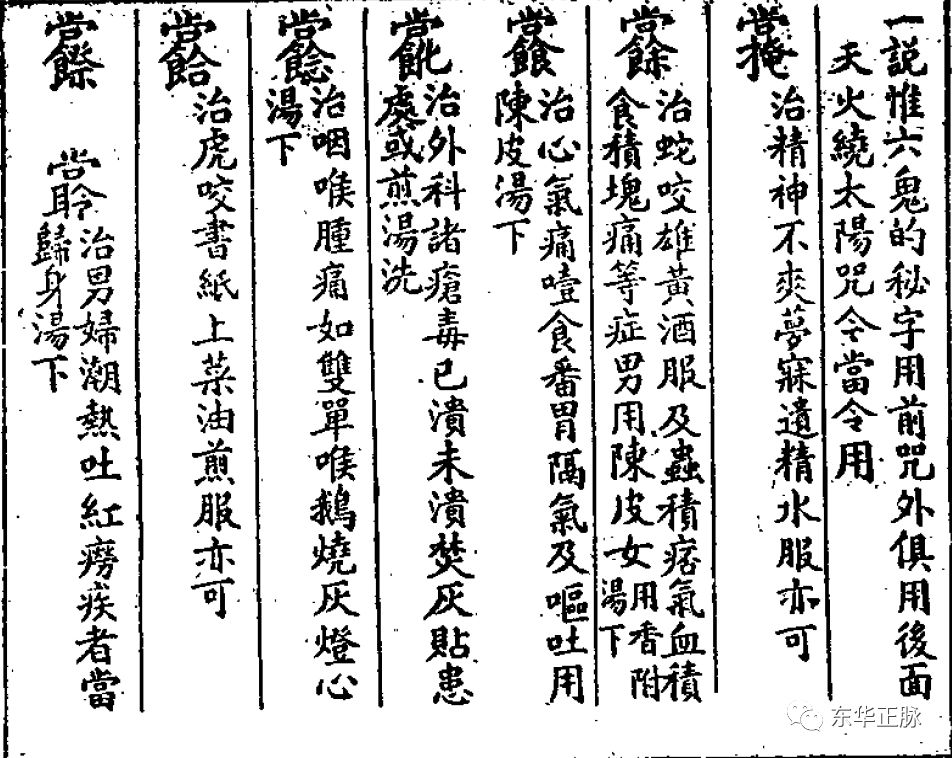 一説惟六鬼的秘字用前咒外俱用後面
天火繞太陽咒令當令用
治精神不爽夢寐遺精水服亦可
治蛇咬雄黃酒服及蟲積痞氣血積
食積塊痛等症男用陳皮女用香附
湯下
治心氣痛噎食番胃隔氣及嘔吐用
陳皮湯下
治外科諸瘡毒已潰未潰焚灰貼患
處或煎湯洗
治咽喉腫痛如雙單喉鵝燒灰燈心
湯下
治虎咬書紙上菜油煎服亦可
治男婦潮熱吐紅癆疾者當
歸身湯下
东华正脉